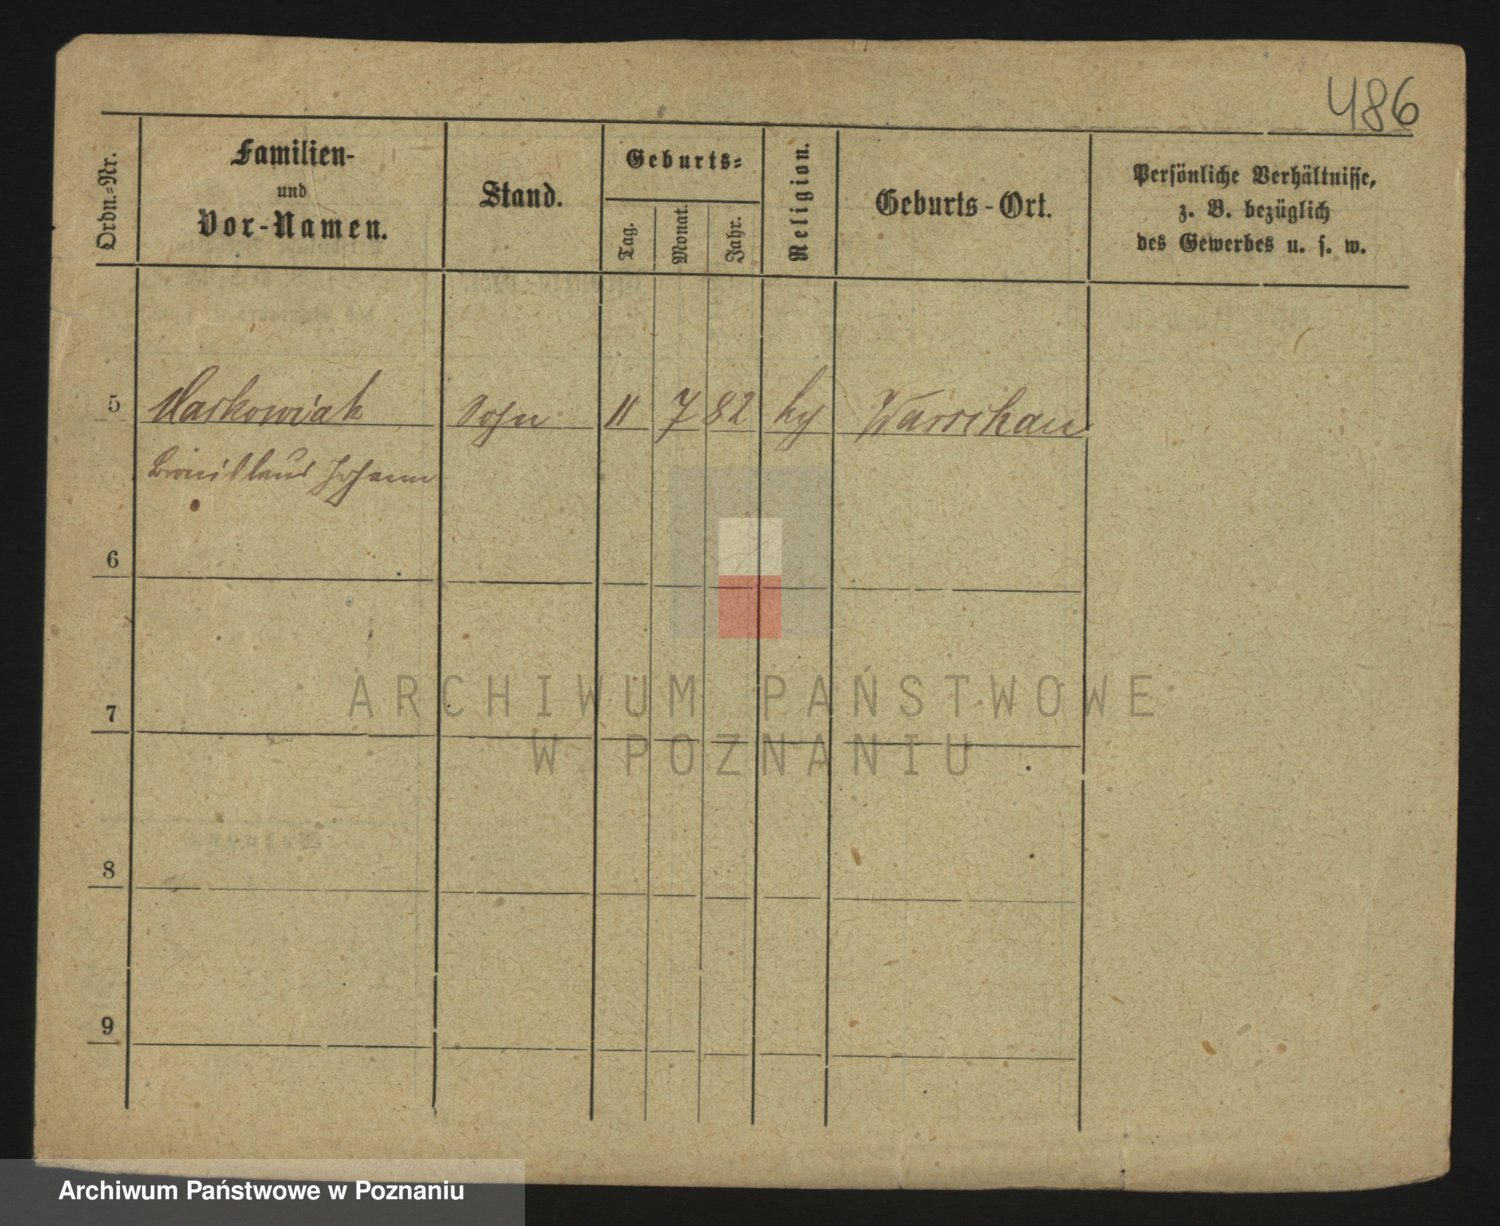 486
Ordn.-Nr.
Familien-
und
Vor-Namen.
Stand.
Geburts-
Tag.
Monat.
Jahr.
Religion.
Geburts-Ort.
Persönliche Verhältnisse,
z. B. bezüglich
des Gewerbes u. s. w.
5 Markowiak Sohn 11 7 82 Warschau
Bronislaus Johann
6
7
8
9
ARCHIWUM PAŃSTWOWE
W POZNANIU
Archiwum Państwowe w Poznaniu